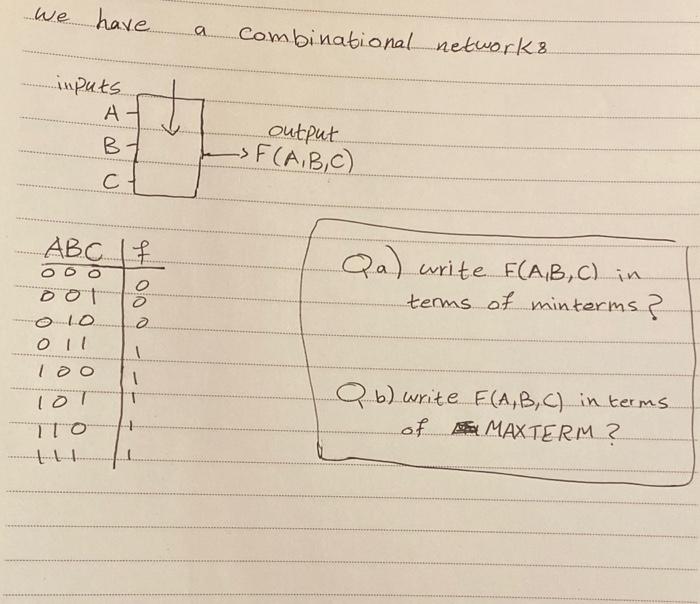 We have a combinational network:
inputs
A
B
C
output
F(A,B,C)
ABC f
000 0
001 0
010 0
011 1
100 1
101 1
110 1
111 1
Qa) write F(A,B,C) in
terms of minterms?
Q b) write F(A,B,C) in terms
of MAXTERM?